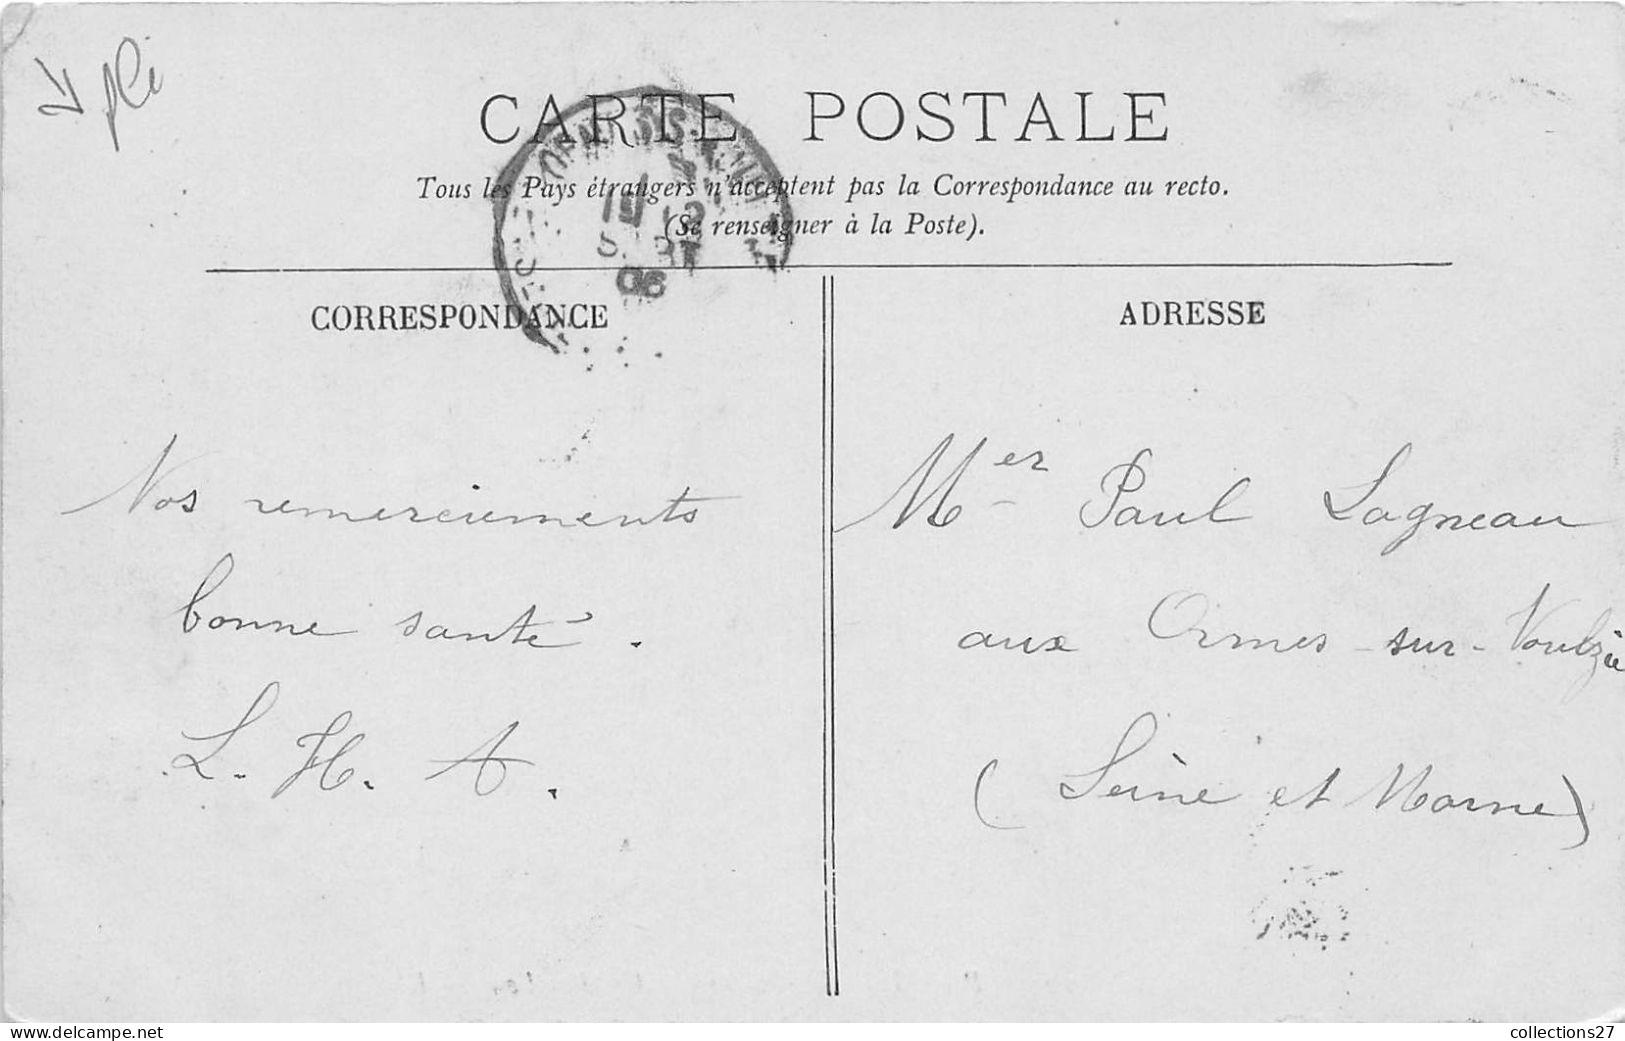 pli
CARTE POSTALE
Tous les Pays étrangers n'acceptent pas la Correspondance au recto.
(Se renseigner à la Poste).
06
CORRESPONDANCE
ADRESSE
Nos remerciements
bonne santé.
L. H. A.
Mer Paul Lagneau
aux Ormes-sur-Voulzie
(Seine et Marne)
www.delcampe.net
collections27